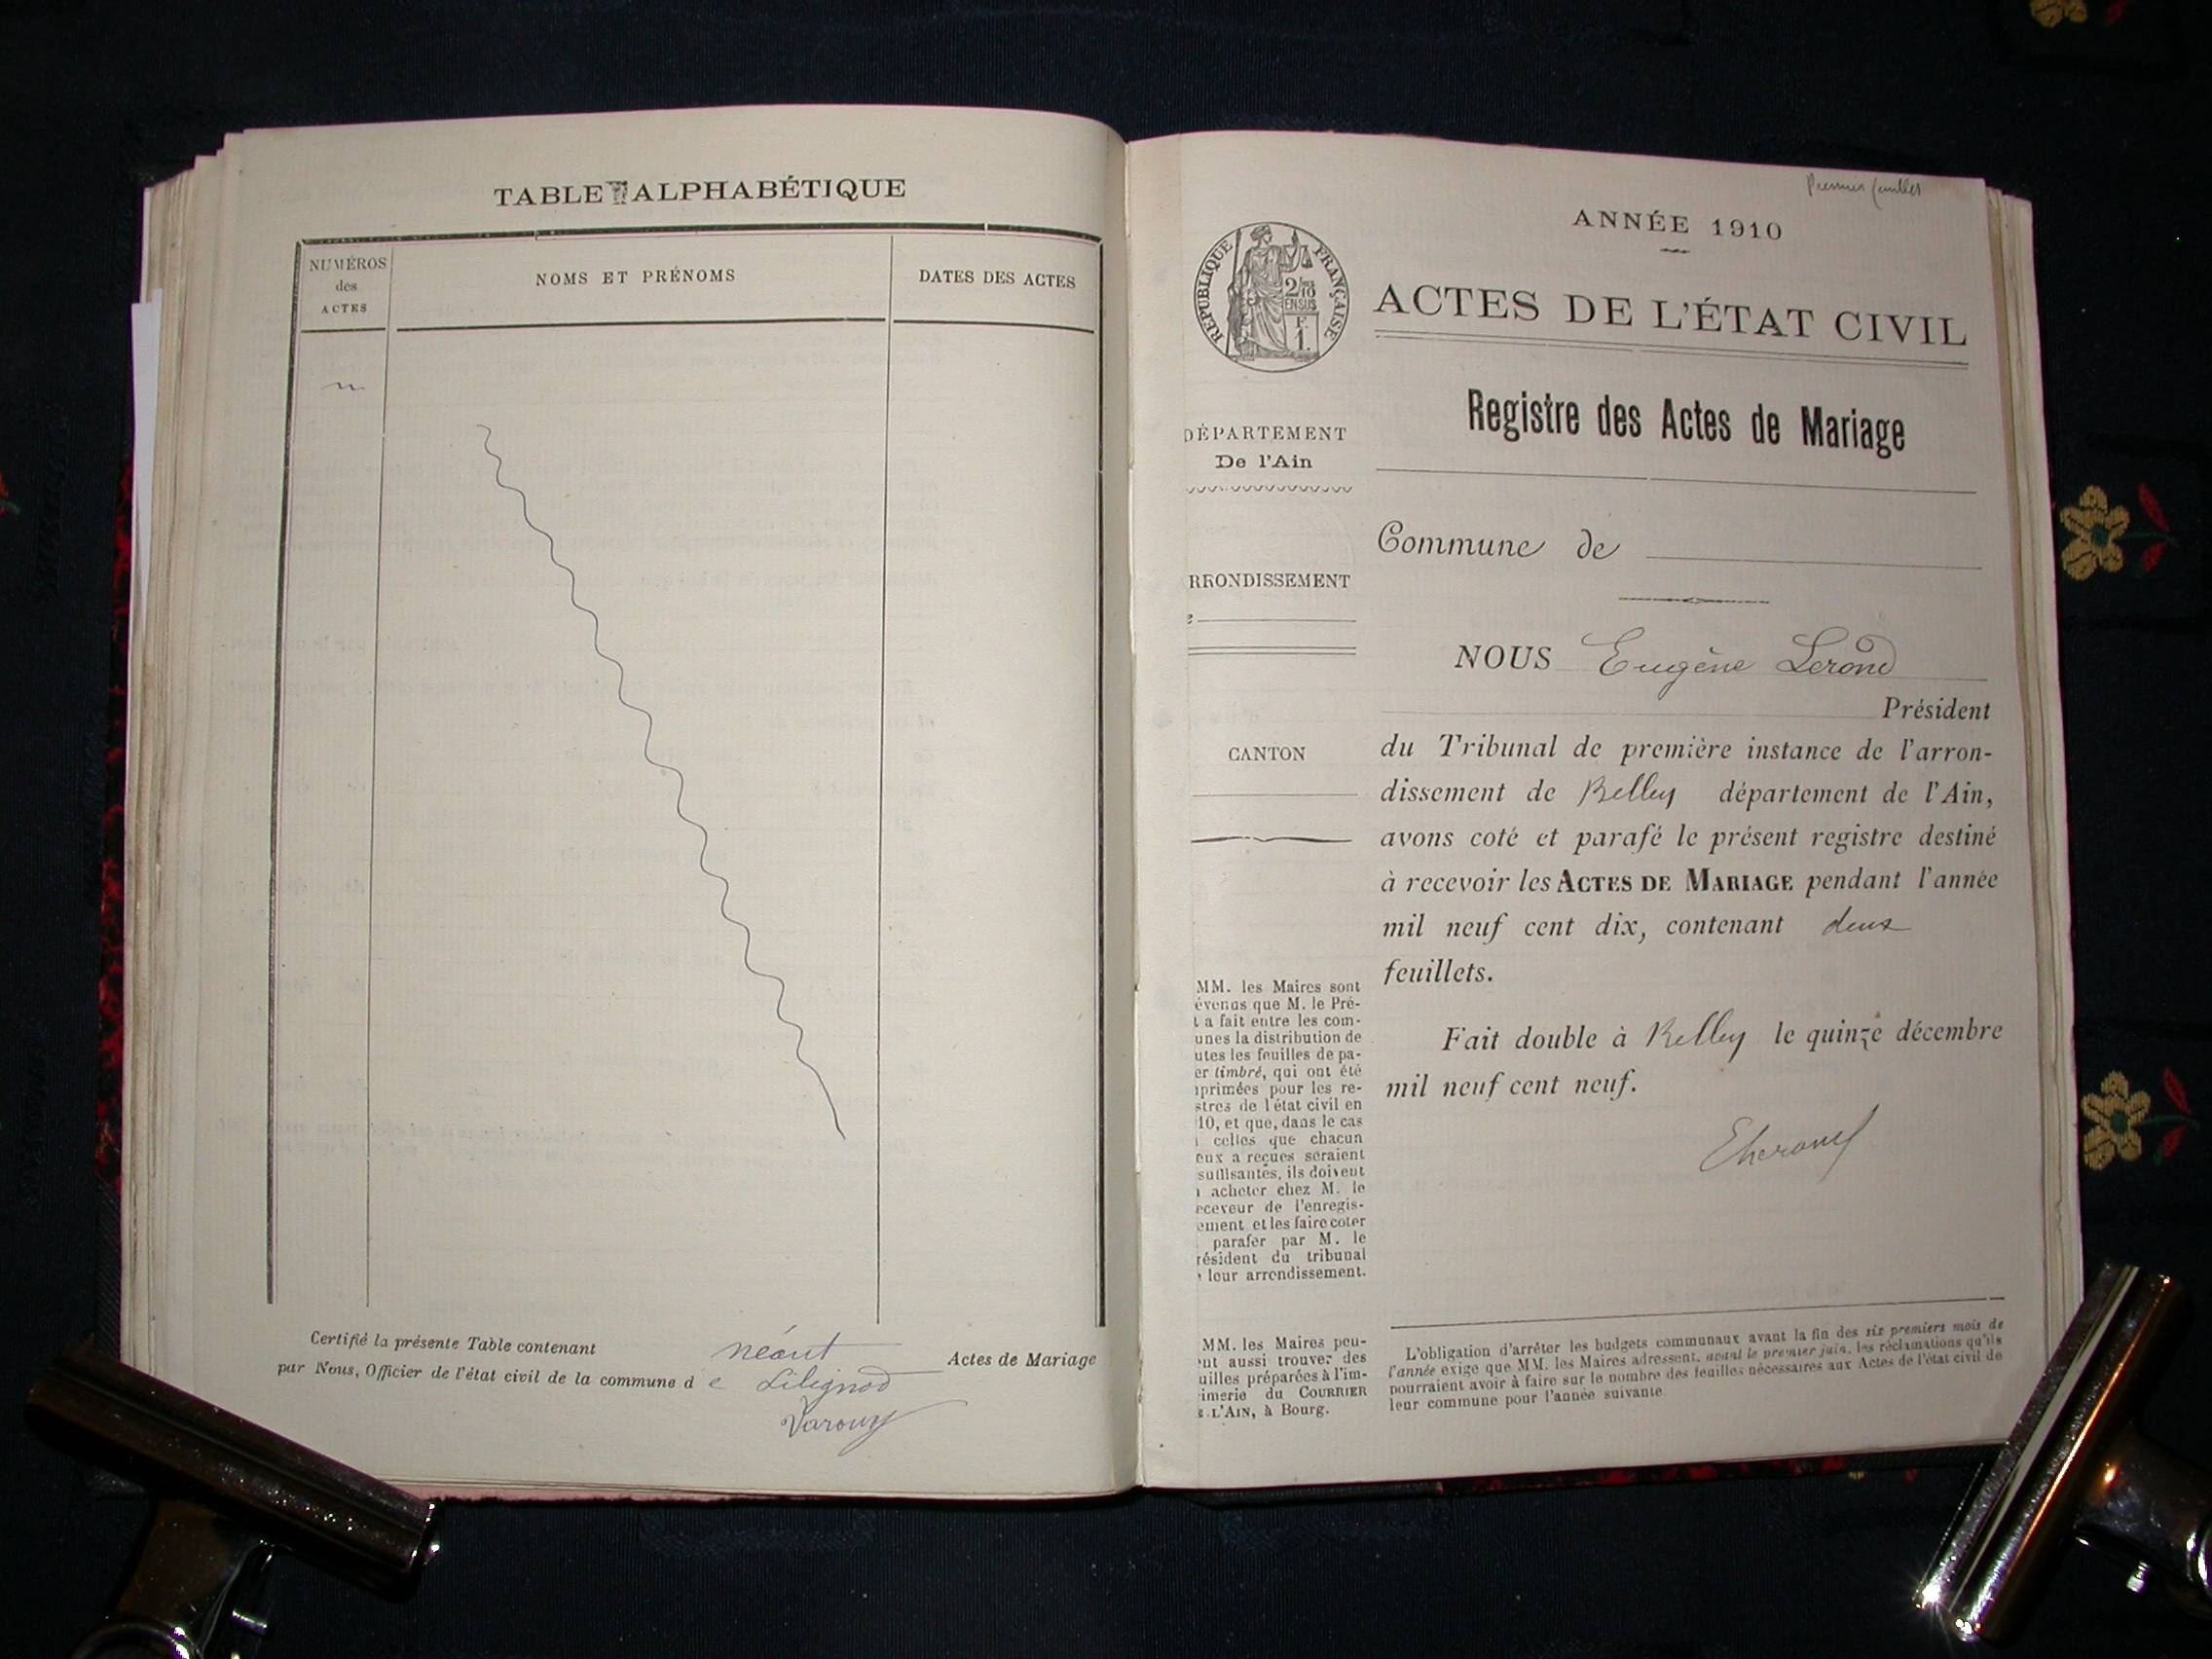 TABLE ALPHABÉTIQUE
NUMÉROS
des
ACTES
NOMS ET PRÉNOMS
DATES DES ACTES
Certifié la présente Table contenant néant Actes de Mariage
par Nous, Officier de l'état civil de la commune de Lilignod
Premier feuillet
ANNÉE 1910
RÉPUBLIQUE FRANÇAISE
2/10
EN SUS
F
1.
ACTES DE L'ÉTAT CIVIL
Registre des Actes de Mariage
DÉPARTEMENT
De l'Ain
RRONDISSEMENT
CANTON
MM. les Maires sont
évenus que M. le Pré-
t a fait entre les com-
unes la distribution de
utes les feuilles de pa-
er timbré, qui ont été
primées pour les re-
stres de l'état civil en
10, et que, dans le cas
celles que chacun
eux a reçues seraient
suffisantes, ils doivent
acheter chez M. le
eceveur de l'enregis-
ement et les faire coter
parafer par M. le
résident du tribunal
leur arrondissement.
MM. les Maires peu-
ent aussi trouver des
uilles préparées à l'im-
imerie du COURRIER
L'AIN, à Bourg.
Commune de
NOUS Eugène Lerond
Président
du Tribunal de première instance de l'arron-
dissement de Belley département de l'Ain,
avons coté et parafé le présent registre destiné
à recevoir les ACTES DE MARIAGE pendant l'année
mil neuf cent dix, contenant deux
feuillets.
Fait double à Belley le quinze décembre
mil neuf cent neuf.
L'obligation d'arrêter les budgets communaux avant la fin des six premiers mois de
l'année exige que MM. les Maires adressent, avant le premier juin, les réclamations qu'ils
pourraient avoir à faire sur le nombre des feuilles nécessaires aux Actes de l'état civil de
leur commune pour l'année suivante.